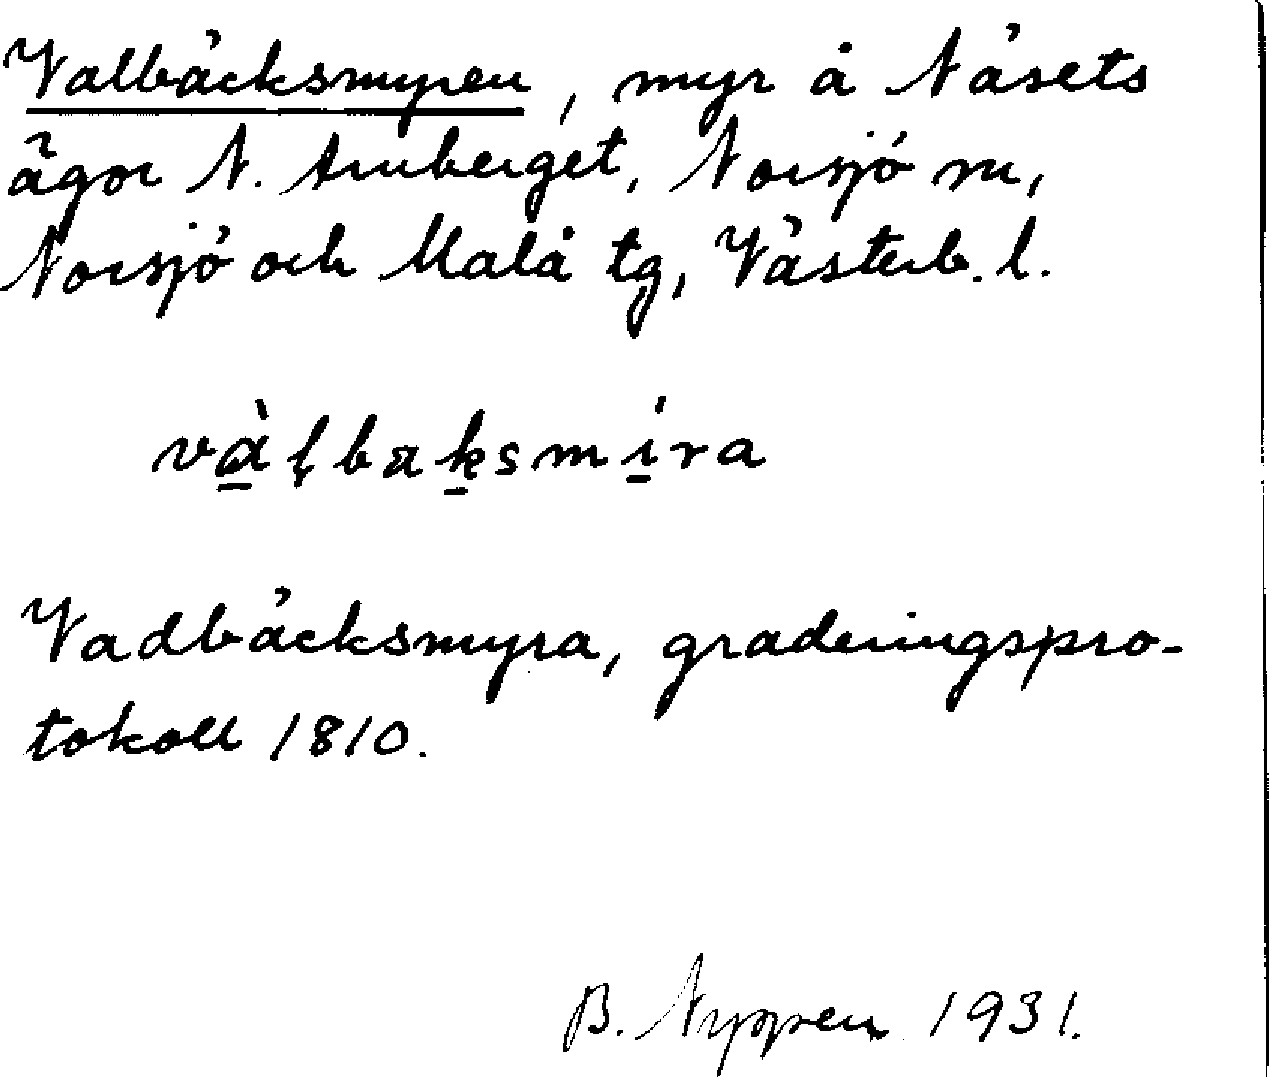 Valbäcksmyren, myr å Näsets
ägor N. Armberget, Norsjö sn,
Norsjö och Malå tg, Västerb. l.
vàḷbaksmíra
Vadbäcksmyra, graderingspro-
tokoll 1810.
B. Nyppen 1931.